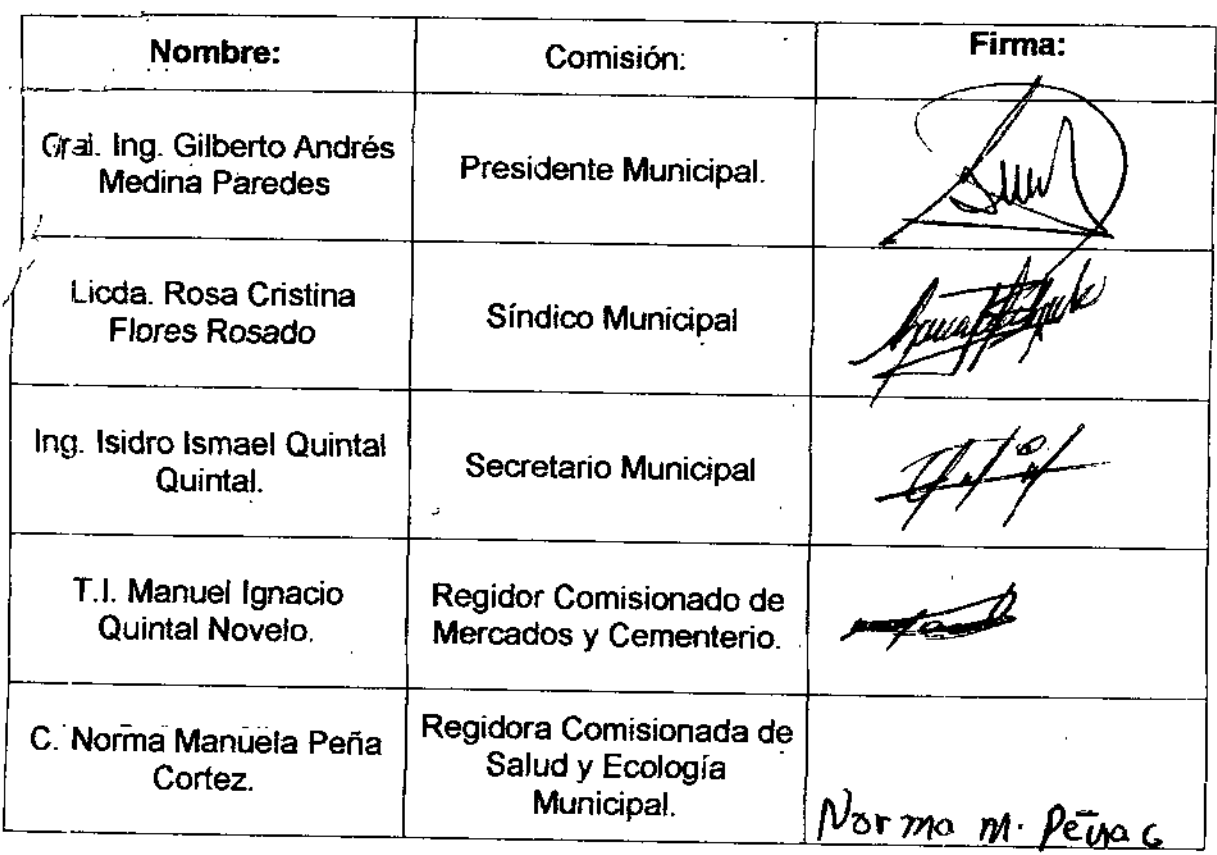 Nombre: Comisión: Firma:
Gral. Ing. Gilberto Andrés
Medina Paredes
Presidente Municipal.
Licda. Rosa Cristina
Flores Rosado
Síndico Municipal
Ing. Isidro Ismael Quintal
Quintal.
Secretario Municipal
T.I. Manuel Ignacio
Quintal Novelo.
Regidor Comisionado de
Mercados y Cementerio.
C. Norma Manuela Peña
Cortez.
Regidora Comisionada de
Salud y Ecología
Municipal.
Norma M. Peña C